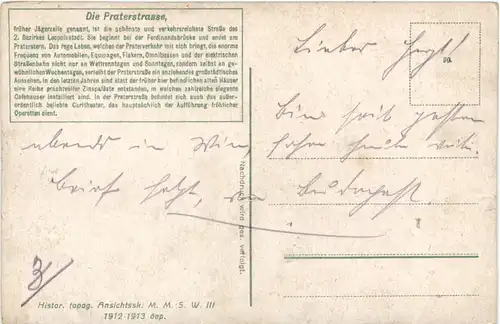 Die Praterstrasse,
früher Jägerzeile genannt, ist die schönste und verkehrsreichste Straße des
2. Bezirkes Leopoldstadt. Sie beginnt bei der Ferdinandsbrücke und endet am
Praterstern. Das rege Leben, welches der Praterverkehr mit sich bringt, die enorme
Frequenz von Automobilen, Equipagen, Fiakern, Omnibussen und der elektrischen
Straßenbahn nicht nur an Wettrenntagen und Sonntagen, sondern selbst an ge-
wöhnlichen Wochentagen, verleiht der Praterstraße ein anziehendes großstädtisches
Aussehen. In den letzten Jahren sind statt der früher hier befindlichen alten Häuser
eine Reihe prachtvoller Zinspaläste entstanden, in welchen zahlreiche elegante
Cafehäuser installiert sind. In der Praterstraße befindet sich auch das außer-
ordentlich beliebte Carltheater, das hauptsächlich der Aufführung fröhlicher
Operetten dient.
Lieber
Bin seit gestern
abends in Wien
fahre heute
Brief
Budapest.
3/
Nachdruck wird ges. verfolgt.
Histor. topog. Ansichtssk. M. M. S. W. III
1912-1913 dep.